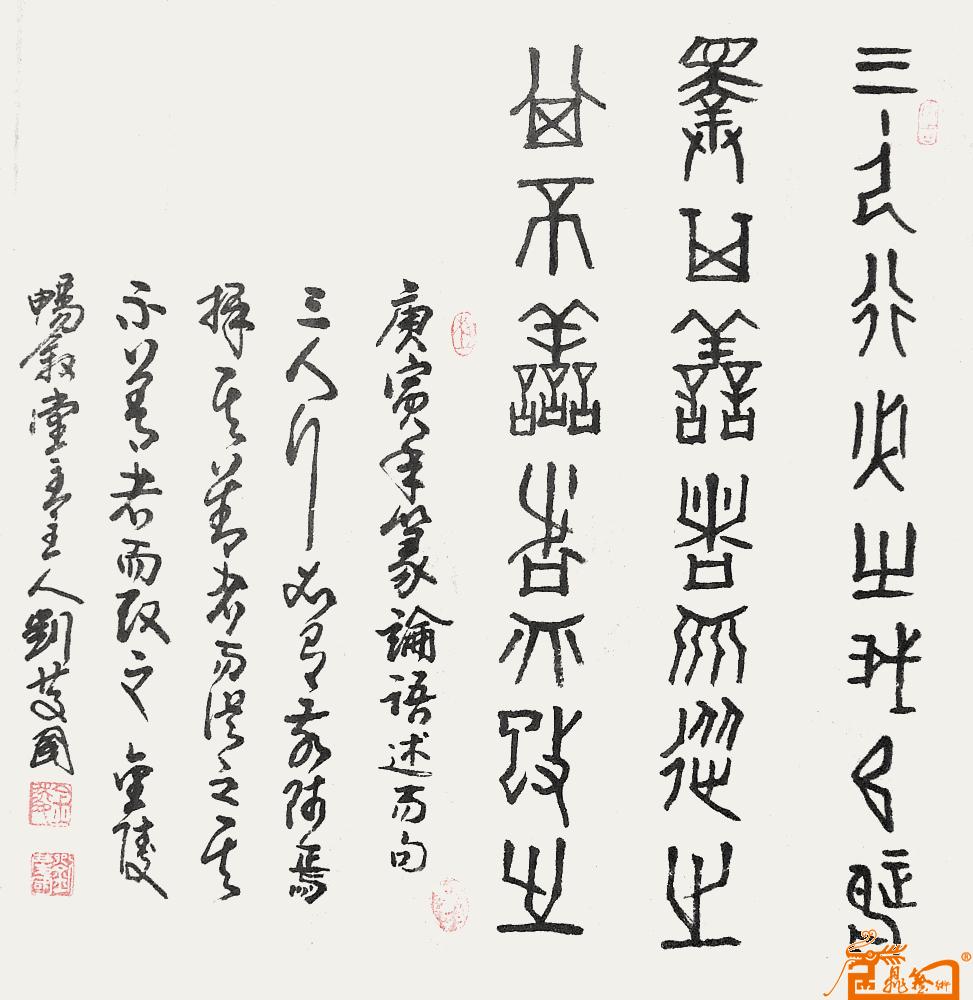 三人行必有我師焉
擇其善者而從之
其不善者而改之
庚寅年篆論語述而句
三人行必有我師焉
擇其善者而從之其
不善者而改之 金陵
暢叙堂主人劉國